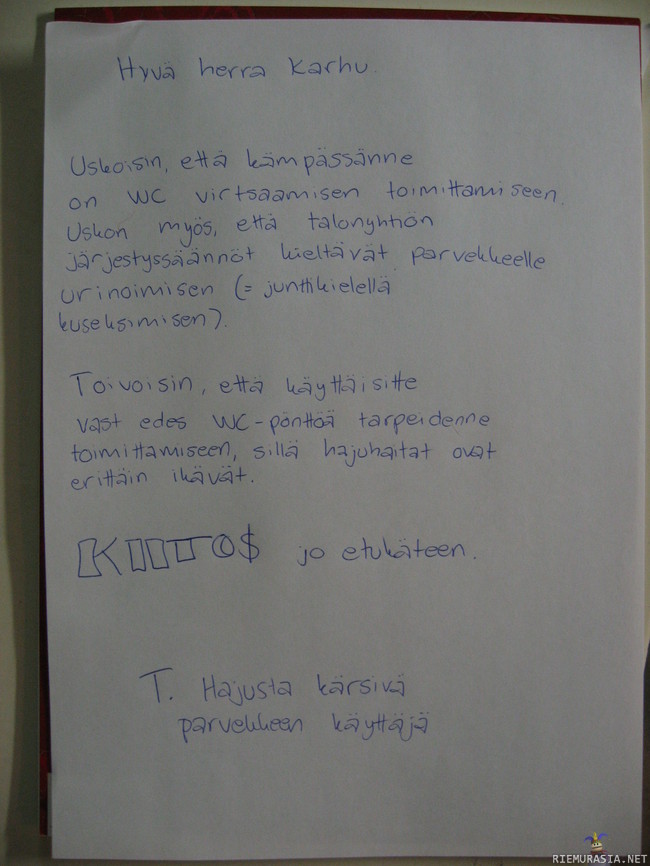 Hyvä herra Karhu.
Uskoisin, että kämpässänne
on WC virtsaamisen toimittamiseen.
Uskon myös, että talonyhtiön
järjestyssäännöt kieltävät parvekkeelle
urinoimisen (= junttikielellä
kuseksimisen).
Toivoisin, että käyttäisitte
vast edes WC-pönttöä tarpeidenne
toimittamiseen, sillä hajuhaitat ovat
erittäin ikävät.
KIITO$ jo etukäteen.
T. Hajusta kärsivä
parvekkeen käyttäjä
RIEMURASIA.NET